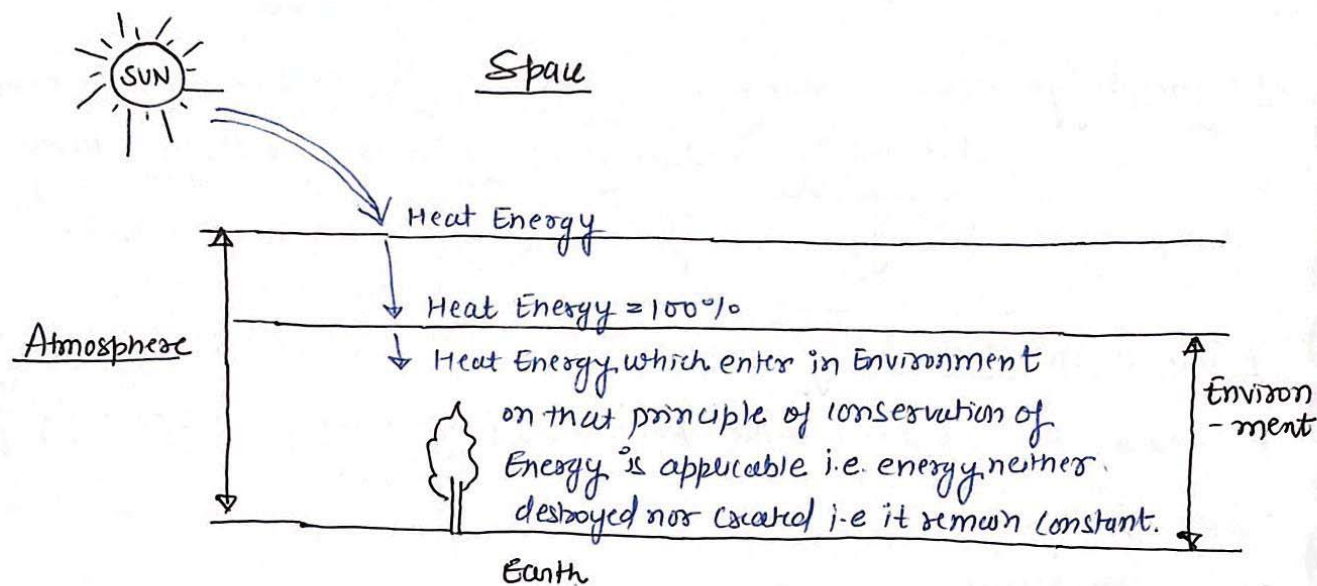 SUN
Space
Heat Energy
Heat Energy = 100%
Atmosphere
Heat Energy which enter in Environment
on that principle of conservation of
Energy is applicable i.e. energy neither
destroyed nor created i.e it remain constant.
Environ
-ment
Earth